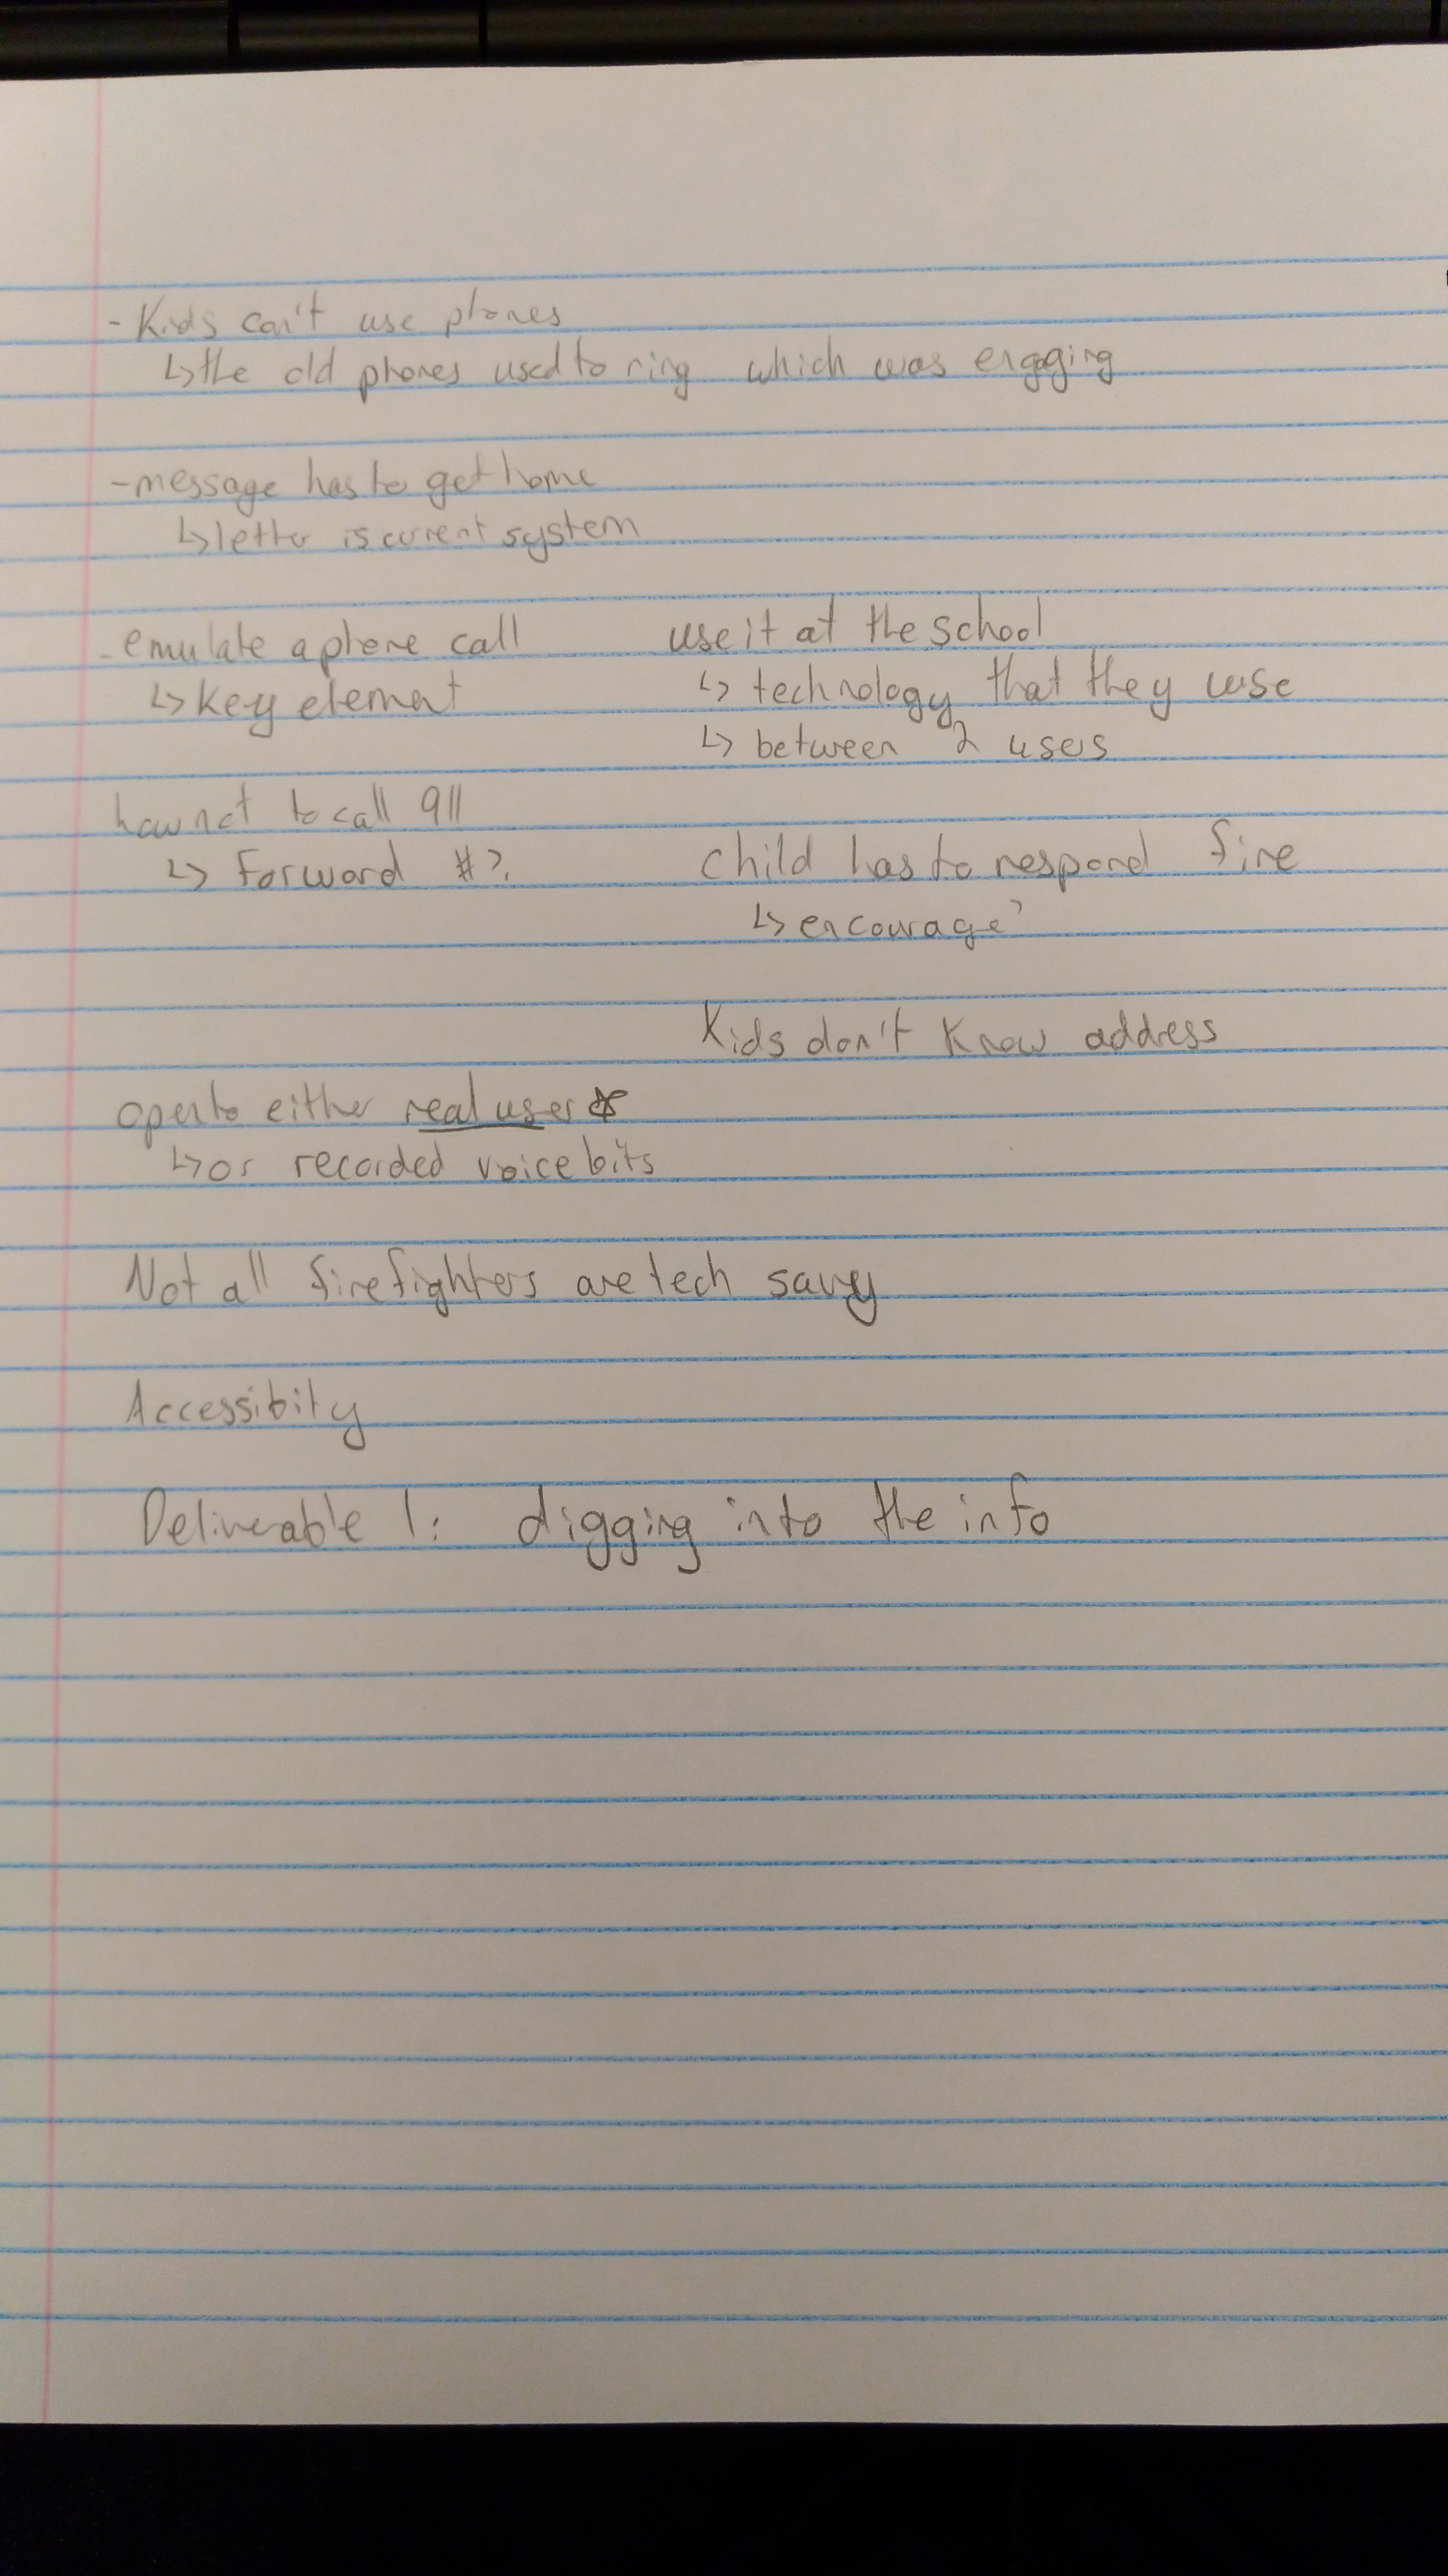 - Kids can't use phones
↳ the old phones used to ring which was engaging
- message has to get home
↳ letter is current system
- emulate a phone call
↳ key element
use it at the school
↳ technology that they use
↳ between 2 users
how not to call 911
↳ Forward #?
child has to respond fire
↳ encourage?
Kids don't know address
open to either real user ☆
↳ or recorded voice bits
Not all firefighters are tech savy
Accessibity
Deliverable 1: digging into the info